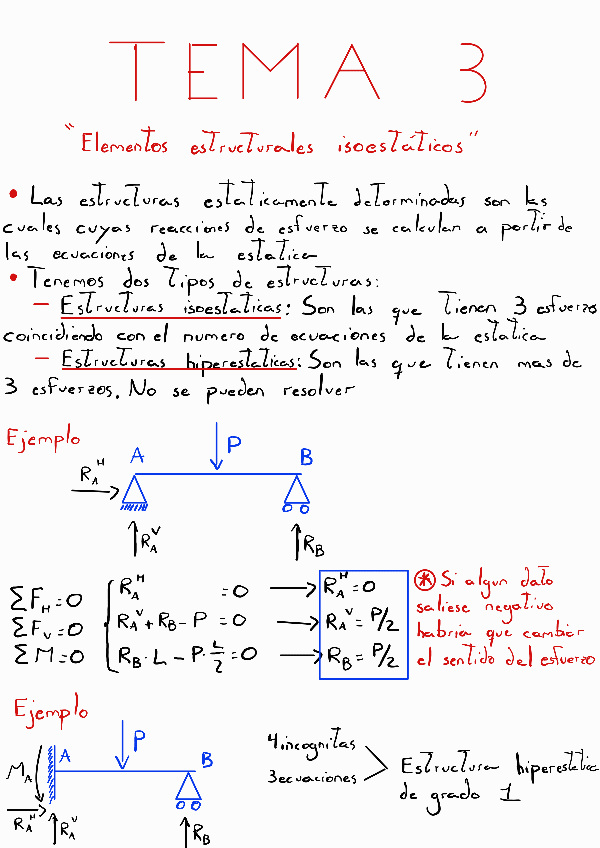 TEMA 3
"Elementos estructurales isoestáticos"
• Las estructuras estaticamente determinadas son las
cuales cuyas reacciones de esfuerzo se calculan a partir de
las ecuaciones de la estatica
• Tenemos dos tipos de estructuras:
– Estructuras isoestaticas: Son las que tienen 3 esfuerzo
coincidiendo con el numero de ecuaciones de la estatica
– Estructuras hiperestaticas: Son las que tienen mas de
3 esfuerzos. No se pueden resolver
Ejemplo
A
P
B
R_A^H
R_A^V
R_B
ΣF_H=0
ΣF_V=0
ΣM=0
R_A^H =0 → R_A^H=0
R_A^V+R_B-P =0 → R_A^V=P/2
R_B·L-P·L/2=0 → R_B=P/2
⊛ Si algun dato
saliese negativo
habria que cambiar
el sentido del esfuerzo
Ejemplo
A
P
B
M_A
R_A^H
R_A^V
R_B
4incognitas
3ecuaciones
Estructura hiperestatica
de grado 1